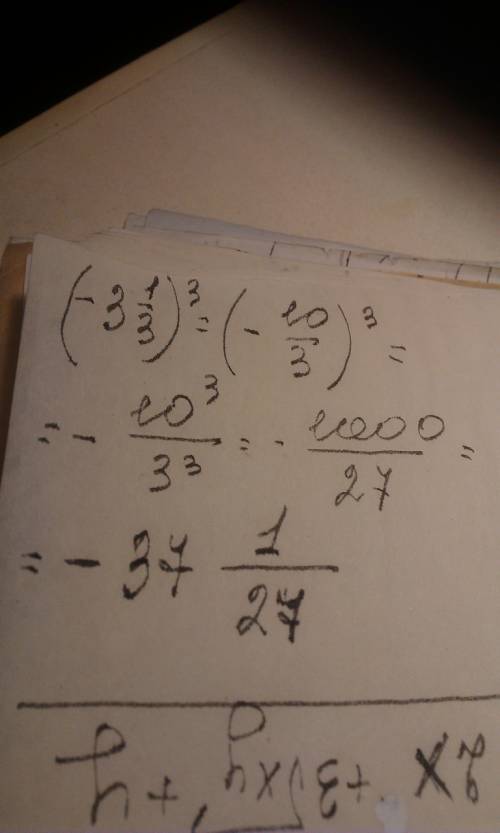 (-3 1/3)³ = (- 10/3)³ =
= - 10³/3³ = - 1000/27 =
= - 37 1/27